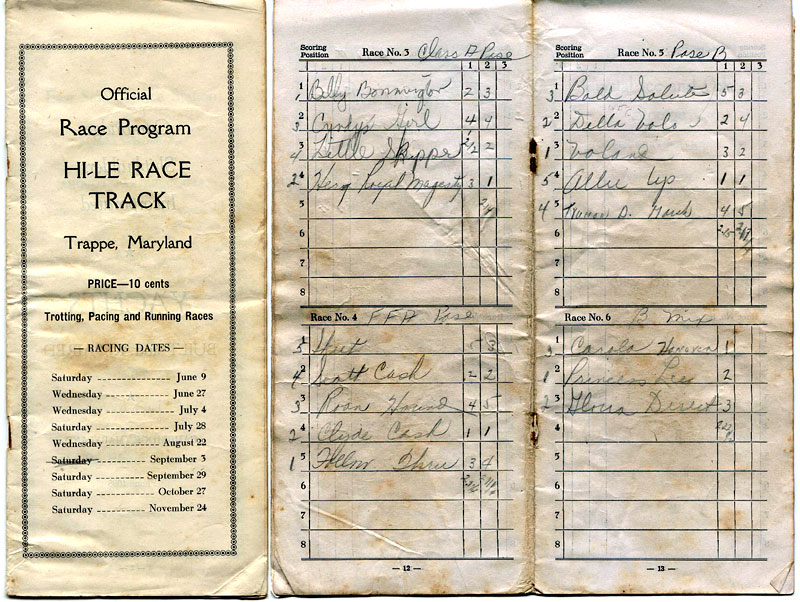 Official
Race Program
HI-LE RACE
TRACK
Trappe, Maryland
PRICE—10 cents
Trotting, Pacing and Running Races
— RACING DATES —
Saturday -------------- June 9
Wednesday ------------ June 27
Wednesday ------------- July 4
Saturday --------------- July 28
Wednesday --------- August 22
Saturday --------- September 3
Saturday -------- September 29
Saturday ---------- October 27
Saturday -------- November 24
Scoring Position Race No. 3 Class A Pase
1 2 3
1 1 Billy 2 3
2 3 Girl 4 4
3 4 Little Skipper 2
4 2 Royal Magesty 3 1
5
6
7
8
Race No. 4 FFA Pase
1 5 3
2 4 Scott Cash 2 2
3 3 Roan Hound 4 5
4 2 Clyde Cash 1 1
5 1 Follow Thru 3 4
6
7
8
— 12 —
Scoring Position Race No. 5 Pase B
1 2 3
1 3 Bold Salute 5 3
2 2 Della Volo 2 4
3 1 Volane 3 2
4 5 Allie Up 1 1
5 4 D. 4 5
6
7
8
Race No. 6 B Mix
1 3 Carola 1
2 1 Princess 2
3 2 Direct 3
4
5
6
7
8
— 13 —